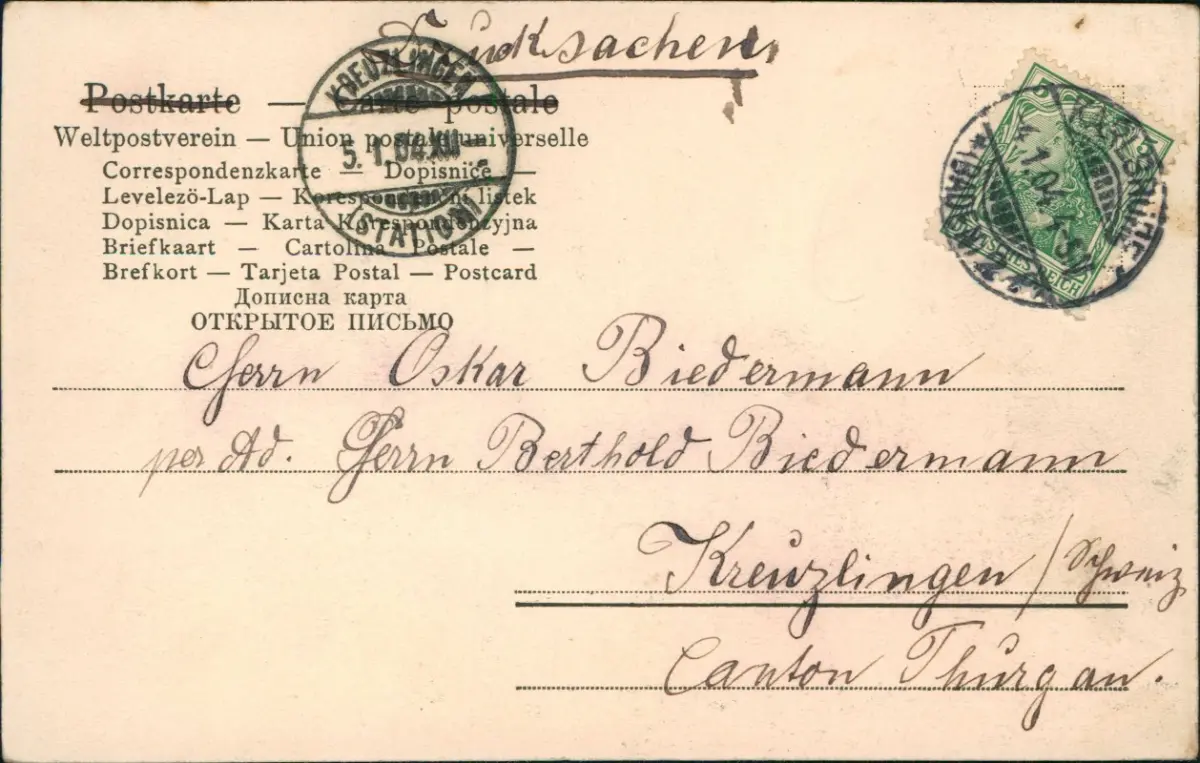 Drucksachen
Postkarte — Carte postale
Weltpostverein — Union postale universelle
Correspondenzkarte — Dopisnice —
Levelező-Lap — Korespondenční lístek
Dopisnica — Karta Korespondencyjna
Briefkaart — Cartolina Postale —
Brefkort — Tarjeta Postal — Postcard
Дописна карта
ОТКРЫТОЕ ПИСЬМО
KREUZLINGEN
5.1.04.XII
(STATION)
KARLSRUHE
4.1.04.
(BADEN)
5
REICH
Herrn Oskar Biedermann
per Ad. Herrn Berthold Biedermann
Kreuzlingen / Schweiz
Canton Thurgau.